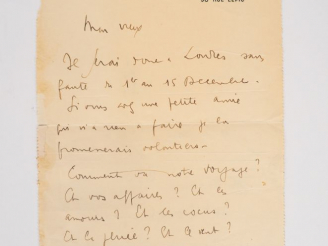 Mon vieux
Je serai donc à Londres sans
faute du 1er au 15 Décembre.
Si vous avez une petite amie
qui n'a rien à faire je la
promenerais volontiers.
Comment va votre voyage ?
Et vos affaires ? Et les
amours ? Et les coeurs ?
Et la pluie ? Et